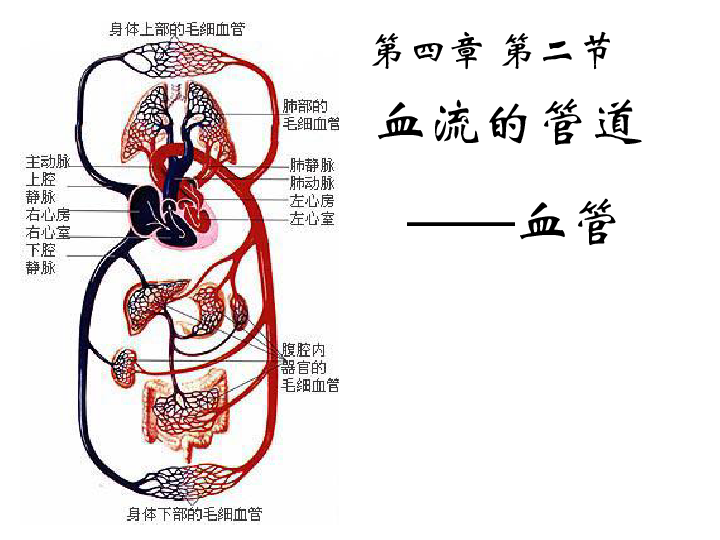 身体上部的毛细血管
第四章 第二节
血流的管道
——血管
肺部的
毛细血管
主动脉
上腔
静脉
右心房
右心室
下腔
静脉
肺静脉
肺动脉
左心房
左心室
腹腔内
器官的
毛细血管
身体下部的毛细血管